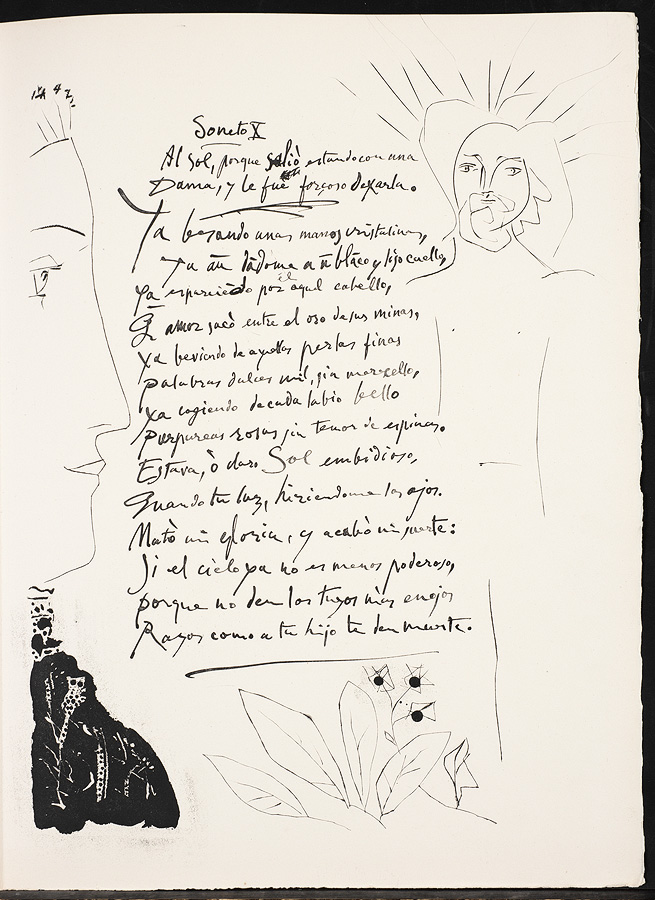 Soneto X
Al Sol, porque saliò estando con una
Dama, y le fuè forçoso dexarla.
Ya besando unas manos cristalinas,
ya añudãdome a ũ blãco y liso cuello,
ya esparciẽdo por el aquel cabello,
Q̃ amor sacò entre el oro de sus minas,
ya beviendo de aquellas perlas finas
palabras dulces mil, sin merecello,
ya cogiendo de cada labio bello
purpureas rosas sin temor de espinas.
Estava, ò claro Sol embidioso,
Quando tu luz, hiriendome los ojos.
Matò mi gloria, y acabò mi suerte:
Si el cielo ya no es menos poderoso,
porque no den los tuyos màs enojos
Rayos como a tu hijo te den muerte.